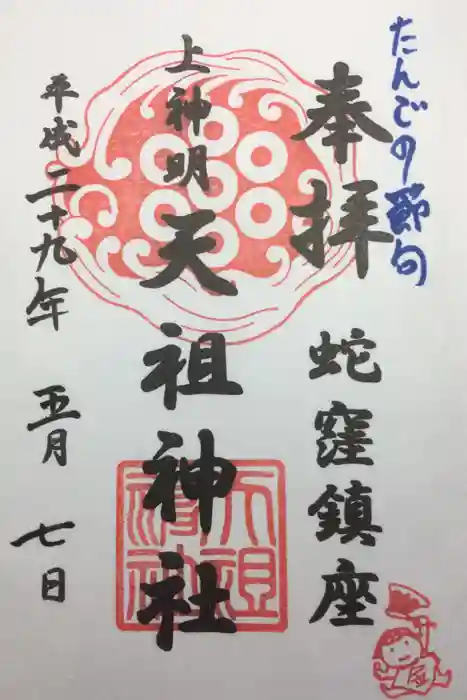 たんごの節句
奉拝
蛇窪鎮座
上神明
天祖神社
平成二十九年
五月
七日
天祖神社